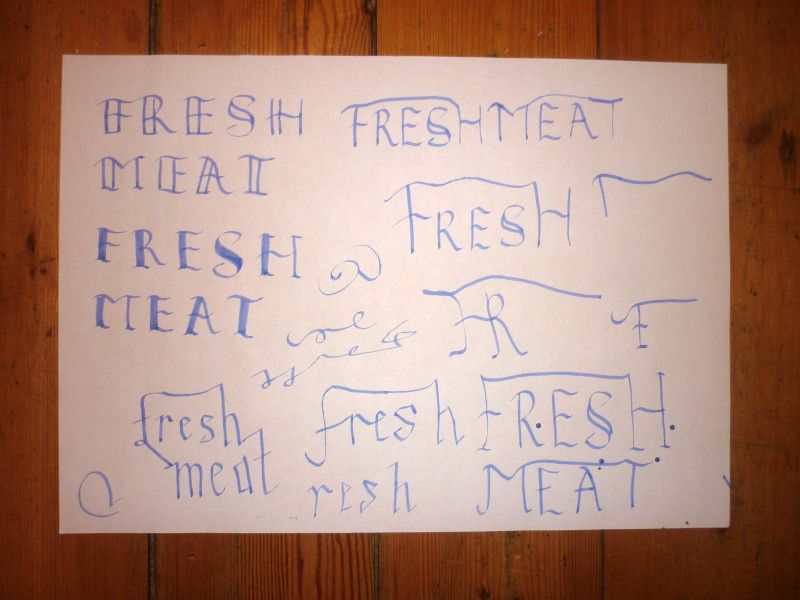 FRESH
MEAT
FRESHMEAT
FRESH
FRESH
MEAT
FR
F
fresh
meat
fresh
resh
FRESH
MEAT